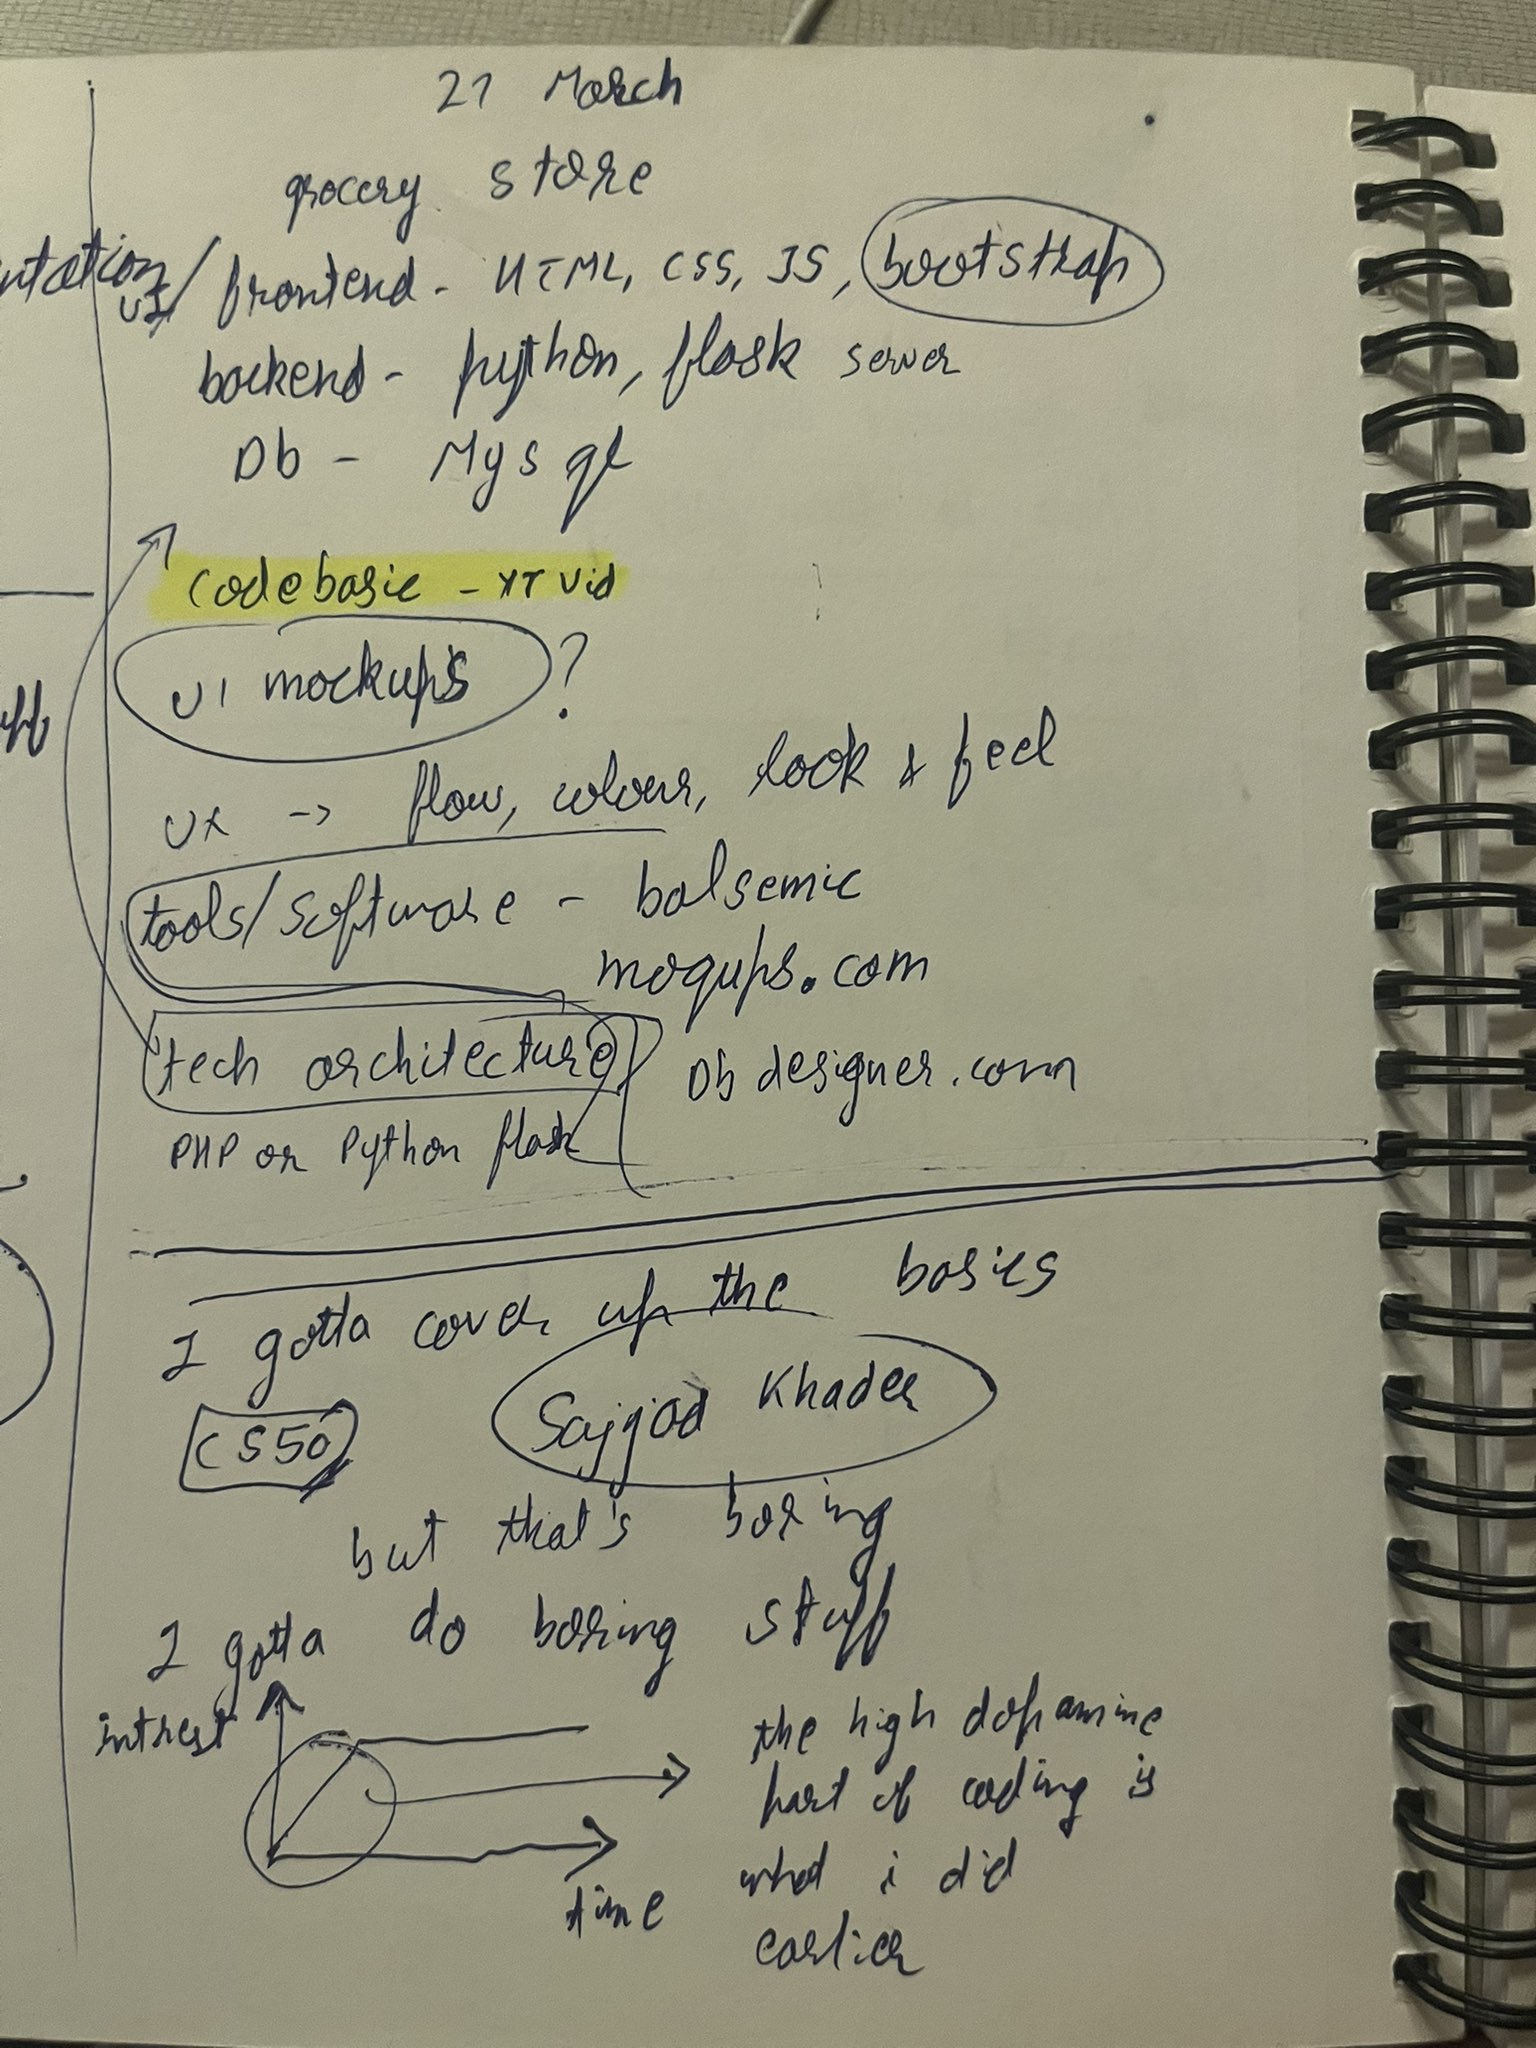 21 March
grocery store
ntation/
UI
frontend - HTML, CSS, JS, bootstrap
backend - python, flask server
Db - Mysql
codebasic - YT vid
UI mockups ?
UX -> flow, colour, look & feel
tools/software - balsemic
moqups.com
tech architecture
Db designer.com
PHP or Python flask
I gotta cover up the basics
CS50
Sajjad Khader
but that's boring
I gotta do boring stuff
intrest
time
the high dopamine
part of coding is
what i did
earlier